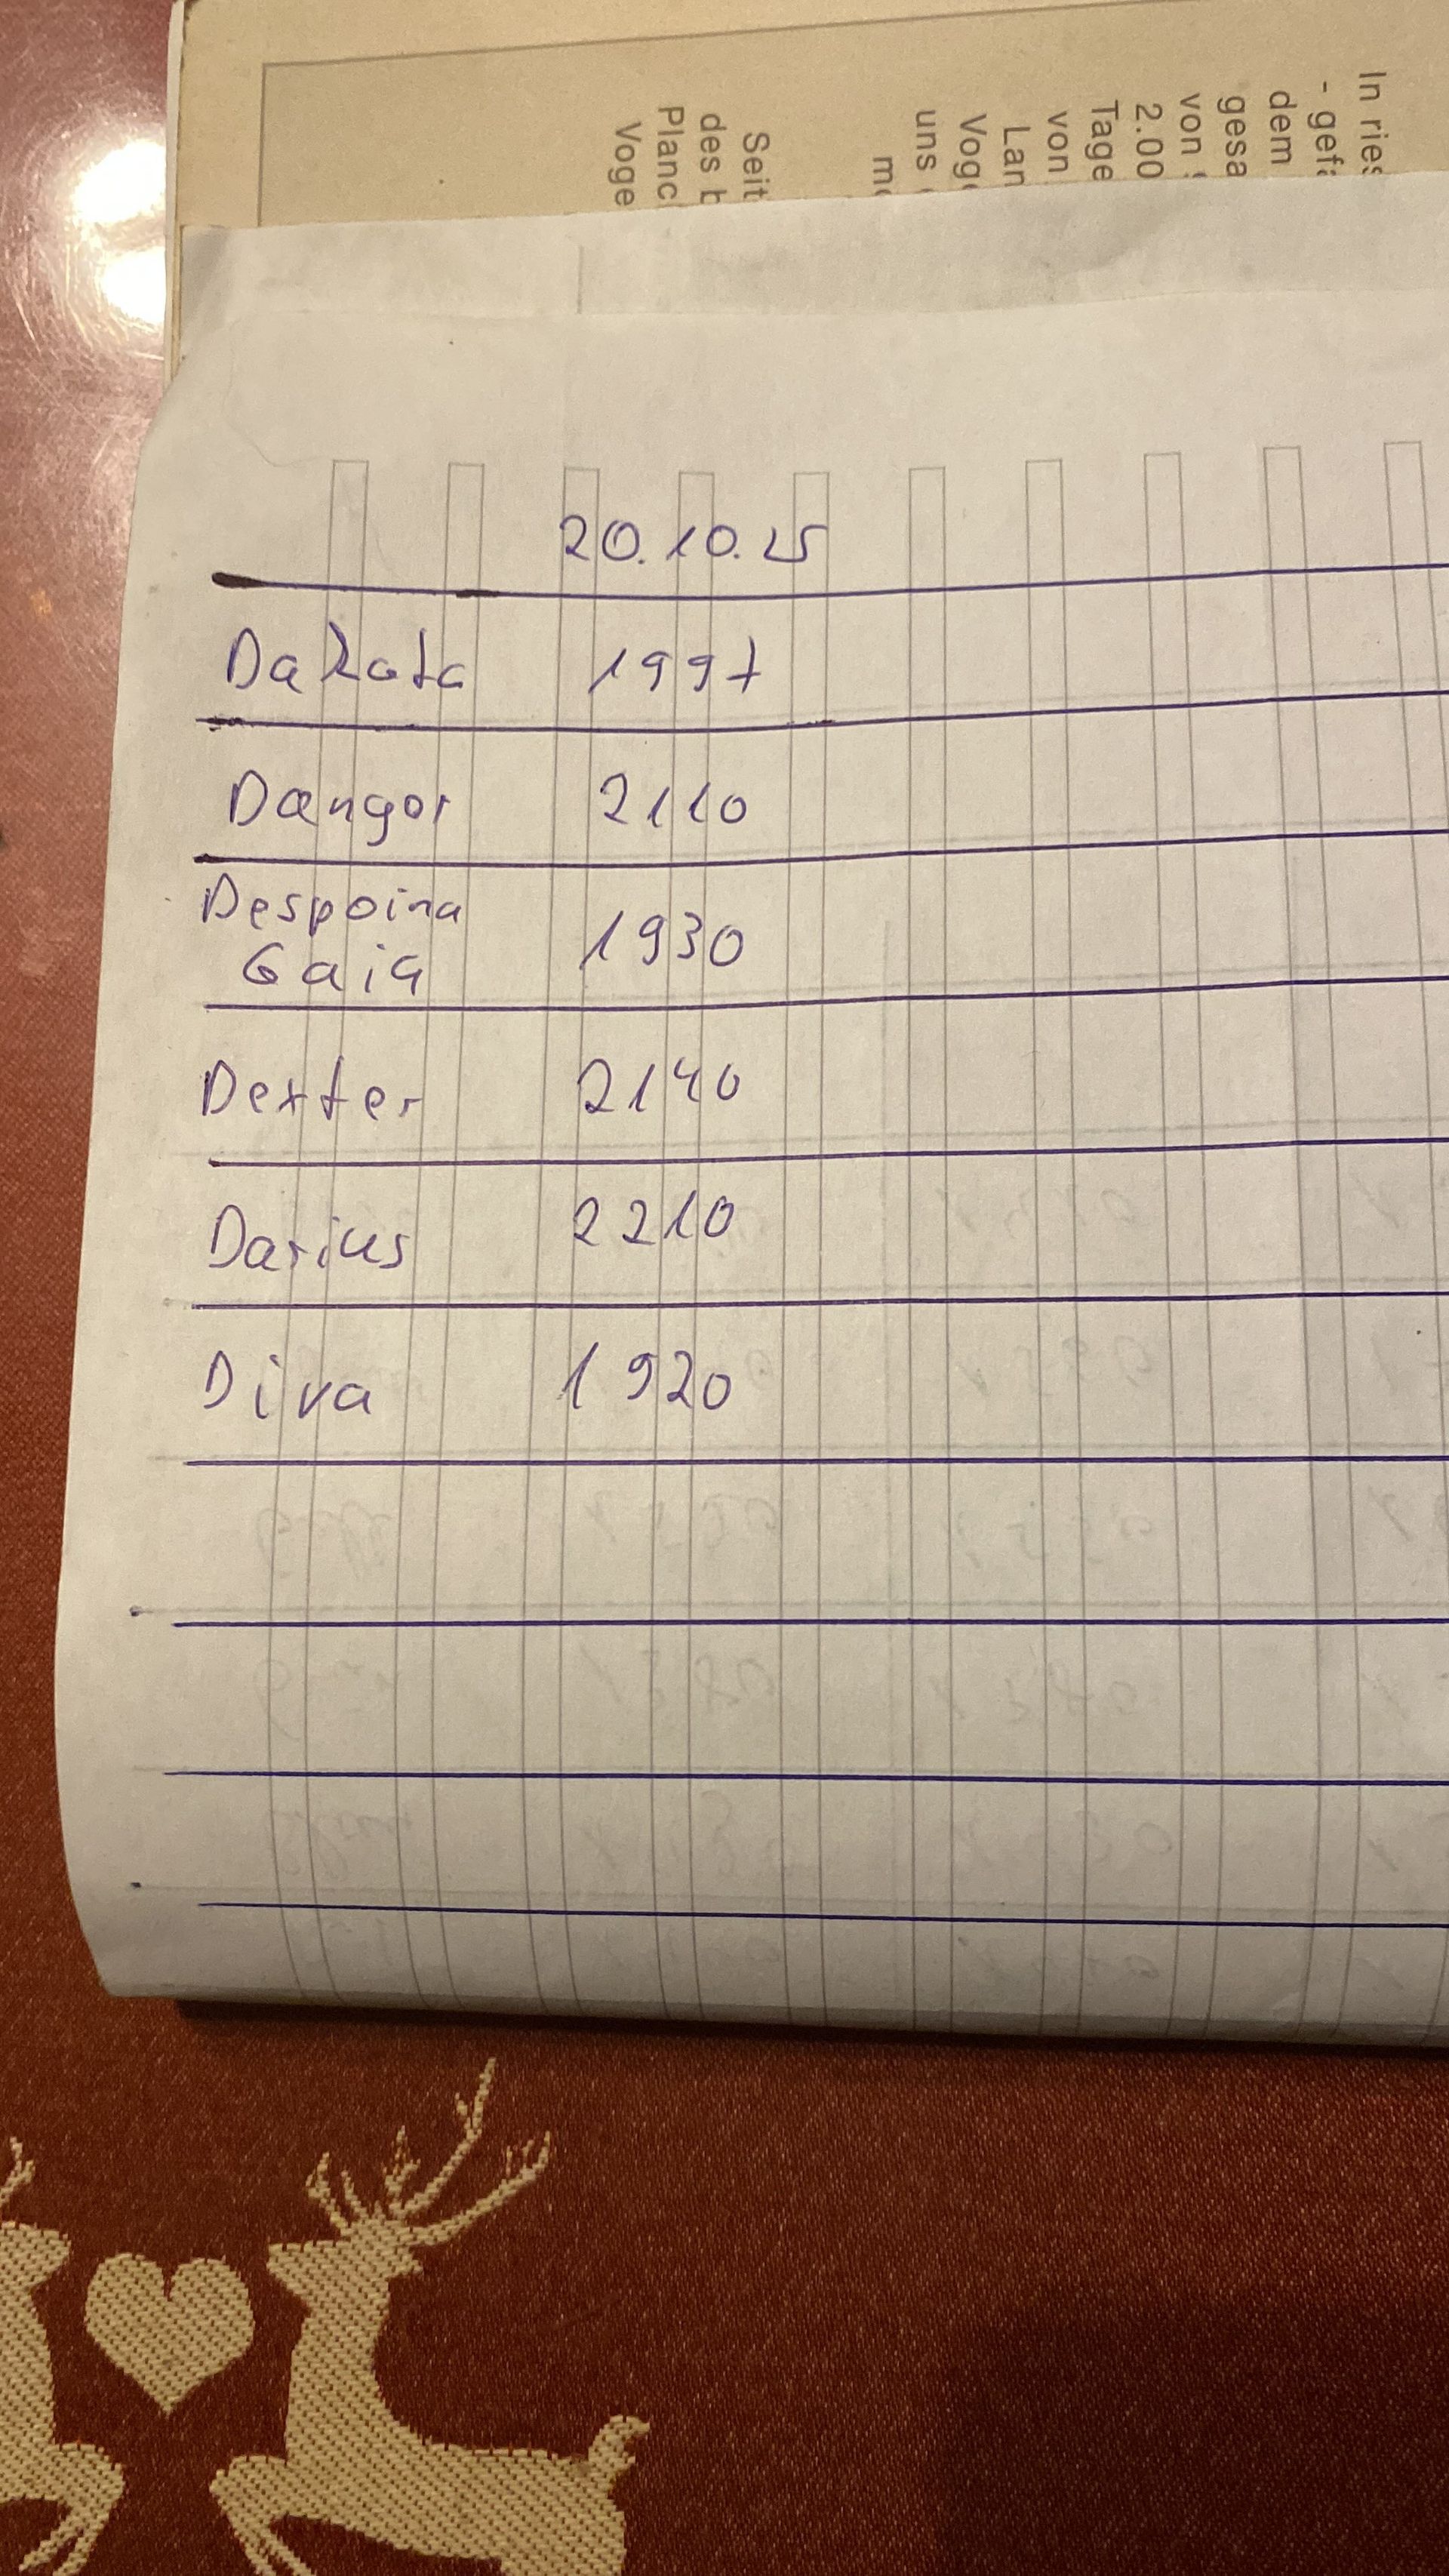 In ries
- gefä
dem
gesa
von
2.00
Tage
von
Lan
Voge
uns
Seit
des b
Planc
Voge
20.10.25
Dakota 1997
Daengor 2110
Despoina
Gaia 1930
Dexter 2140
Darius 2210
Diva 1920